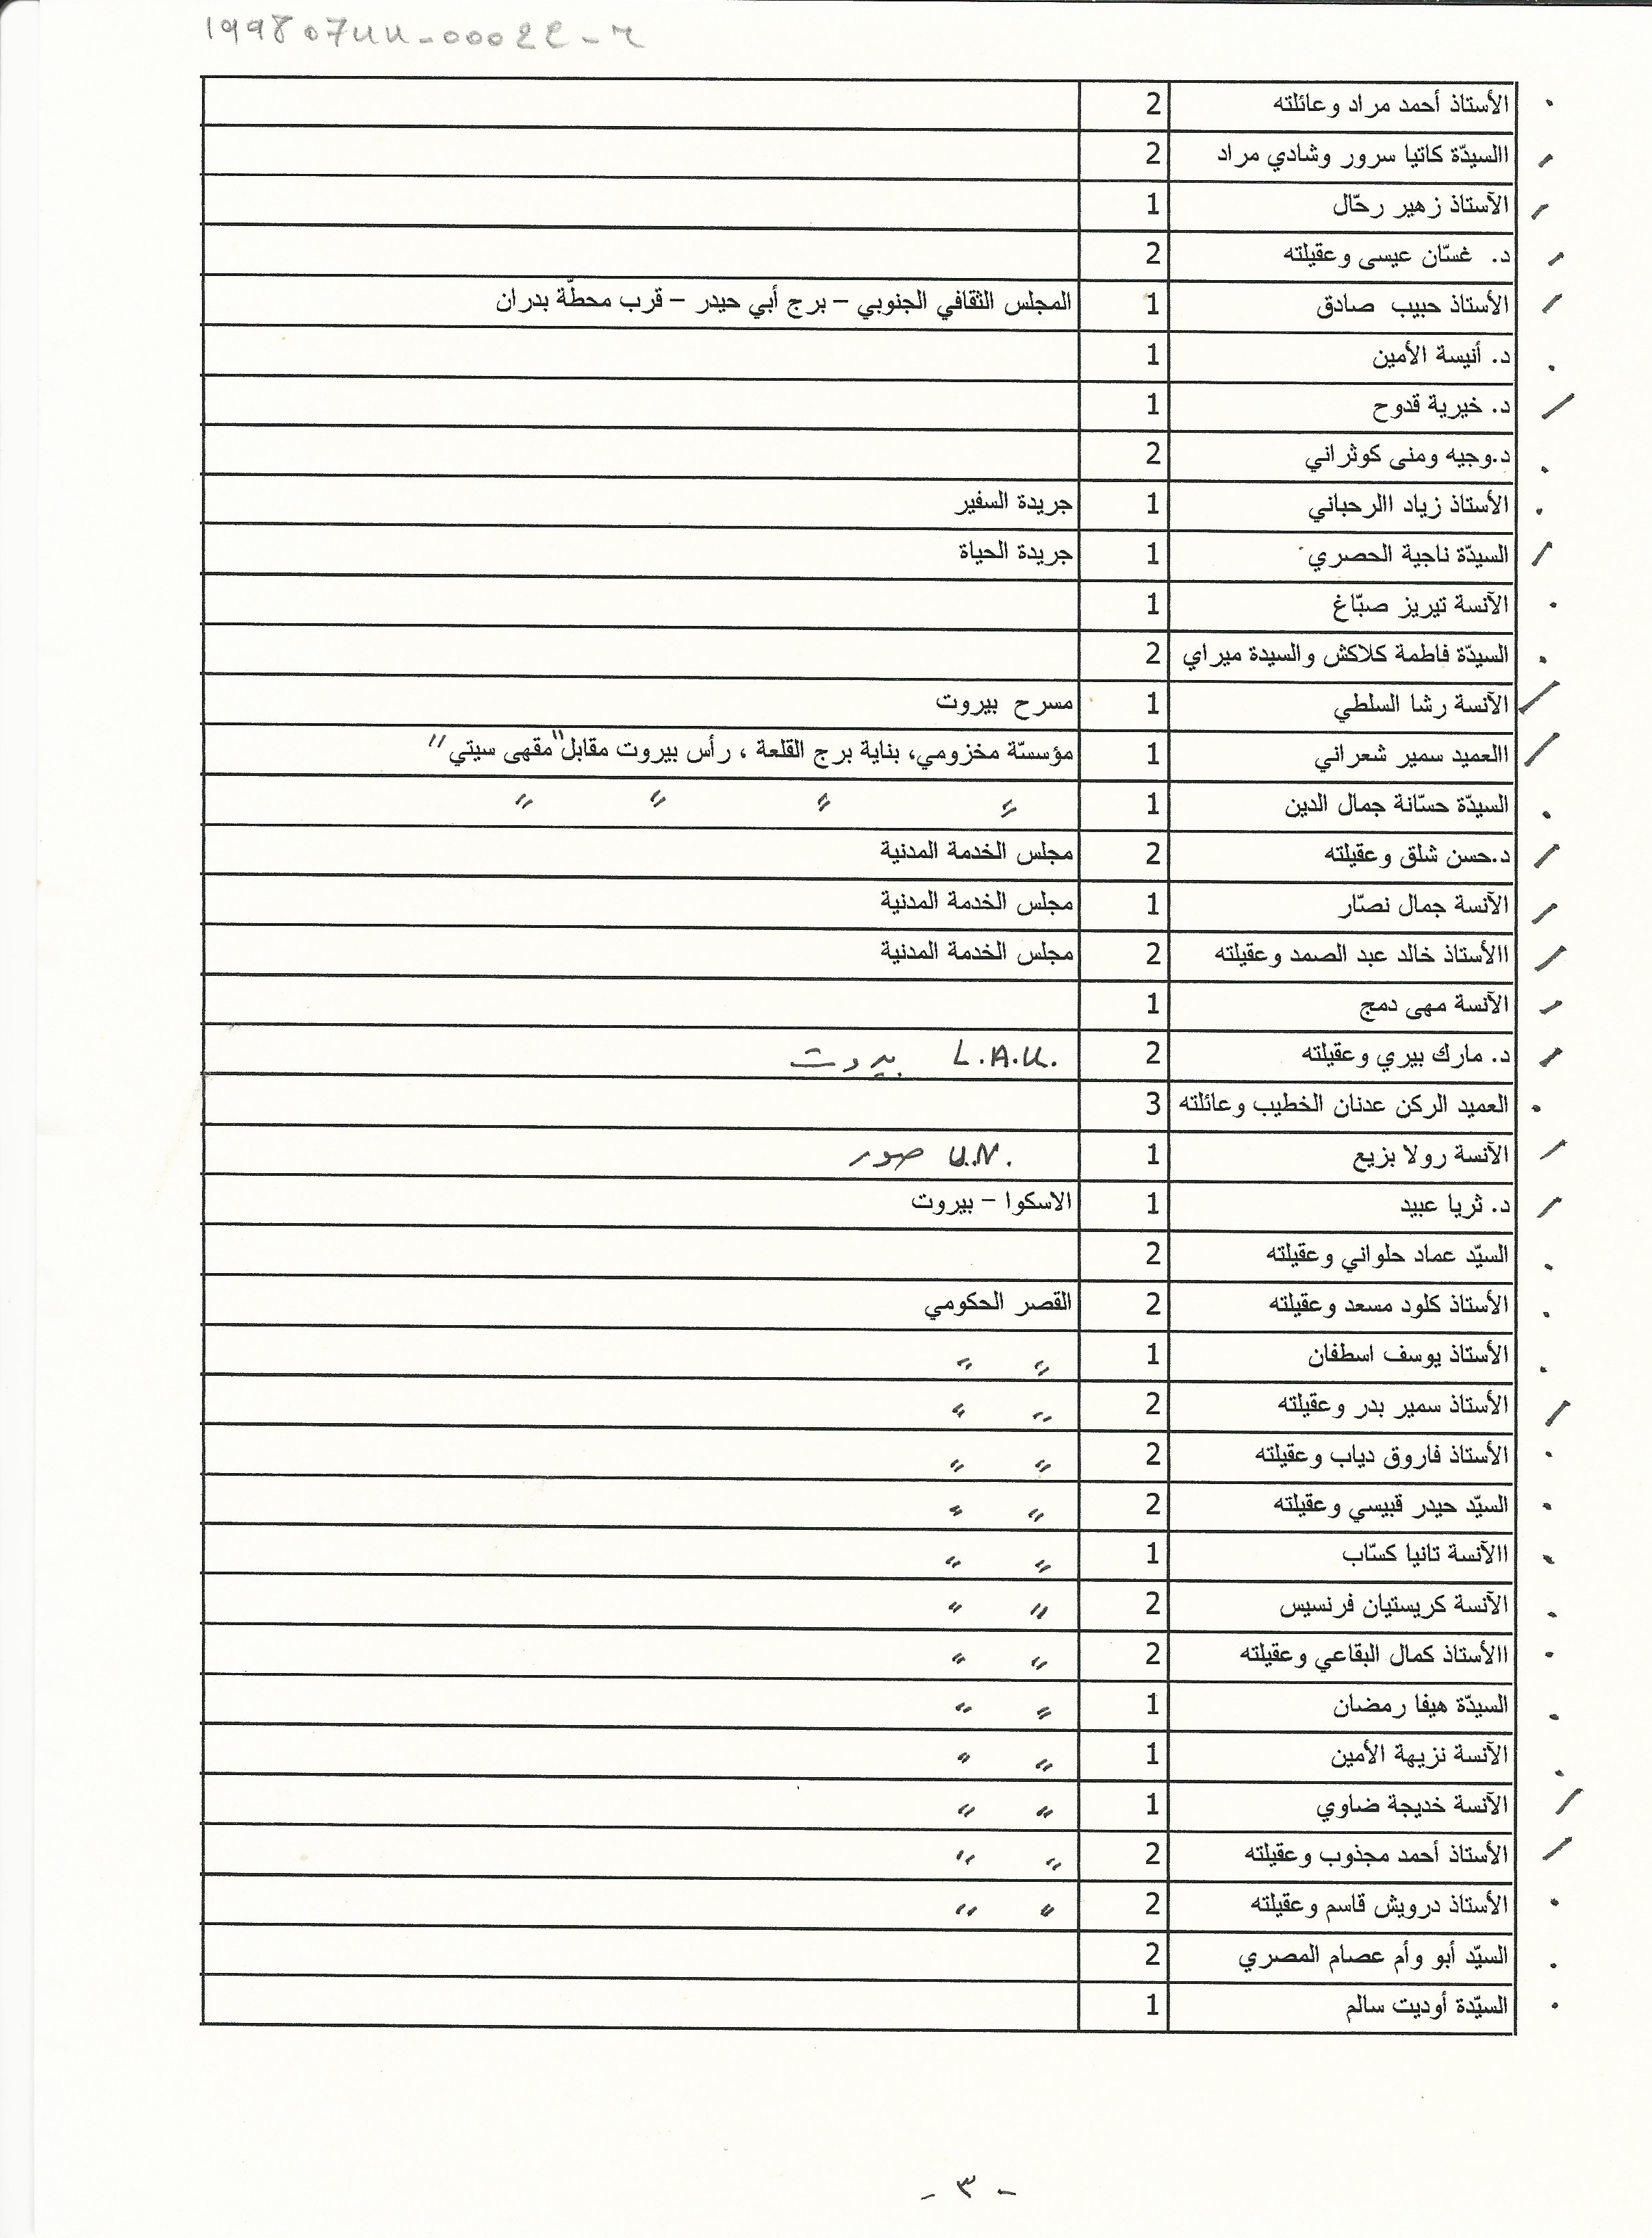 199807UU-00022-2
الأستاذ أحمد مراد وعائلته 2
االسيدّة كاتيا سرور وشادي مراد 2
الآستاذ زهير رحّال 1
د. غسّان عيسى وعقيلته 2
الأستاذ حبيب صادق 1 المجلس الثقافي الجنوبي – برج أبي حيدر – قرب محطّة بدران
د. أنيسة الأمين 1
د. خيرية قدوح 1
د.وجيه ومنى كوثراني 2
الأستاذ زياد االرحباني 1 جريدة السفير
السيدّة ناجية الحصري 1 جريدة الحياة
الآنسة تيريز صبّاغ 1
السيدّة فاطمة كلاكش والسيدة ميراي 2
الآنسة رشا السلطي 1 مسرح بيروت
االعميد سمير شعراني 1 مؤسسّة مخزومي، بناية برج القلعة ، رأس بيروت مقابل "مقهى سيتي"
السيدّة حسّانة جمال الدين 1 " " " "
د.حسن شلق وعقيلته 2 مجلس الخدمة المدنية
الآنسة جمال نصّار 1 مجلس الخدمة المدنية
االأستاذ خالد عبد الصمد وعقيلته 2 مجلس الخدمة المدنية
الآنسة مهى دمج 1
د. مارك بيري وعقيلته 2 L.A.U. بيروت
العميد الركن عدنان الخطيب وعائلته 3
الآنسة رولا بزيع 1 U.N. صور
د. ثريا عبيد 1 الاسكوا – بيروت
السيّد عماد حلواني وعقيلته 2
الأستاذ كلود مسعد وعقيلته 2 القصر الحكومي
الأستاذ يوسف اسطفان 1 " "
الأستاذ سمير بدر وعقيلته 2 " "
الأستاذ فاروق دياب وعقيلته 2 " "
السيّد حيدر قبيسي وعقيلته 2 " "
االآنسة تانيا كسّاب 1 " "
الآنسة كريستيان فرنسيس 2 " "
االأستاذ كمال البقاعي وعقيلته 2 " "
السيدّة هيفا رمضان 1 " "
الآنسة نزيهة الأمين 1 " "
الآنسة خديجة ضاوي 1 " "
الأستاذ أحمد مجذوب وعقيلته 2 " "
الأستاذ درويش قاسم وعقيلته 2 " "
السيّد أبو وأم عصام المصري 2
السيّدة أوديت سالم 1
- ٣ -